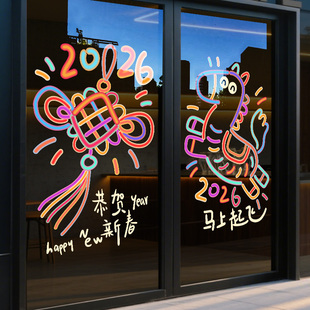 2026
恭贺 year
happy new 新春
2026
马上起飞